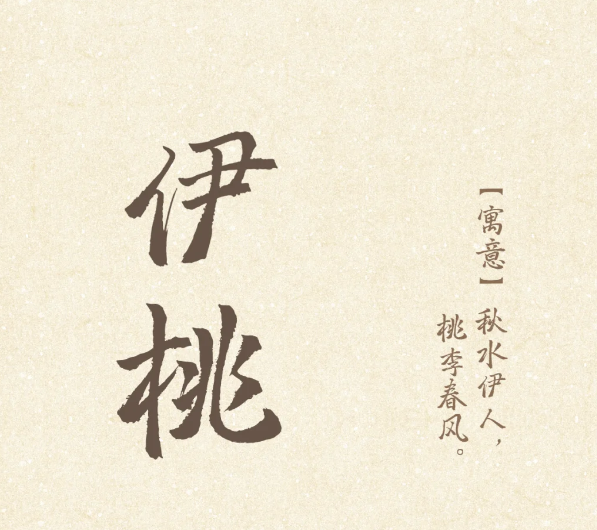 伊桃
【寓意】秋水伊人，
桃李春风。